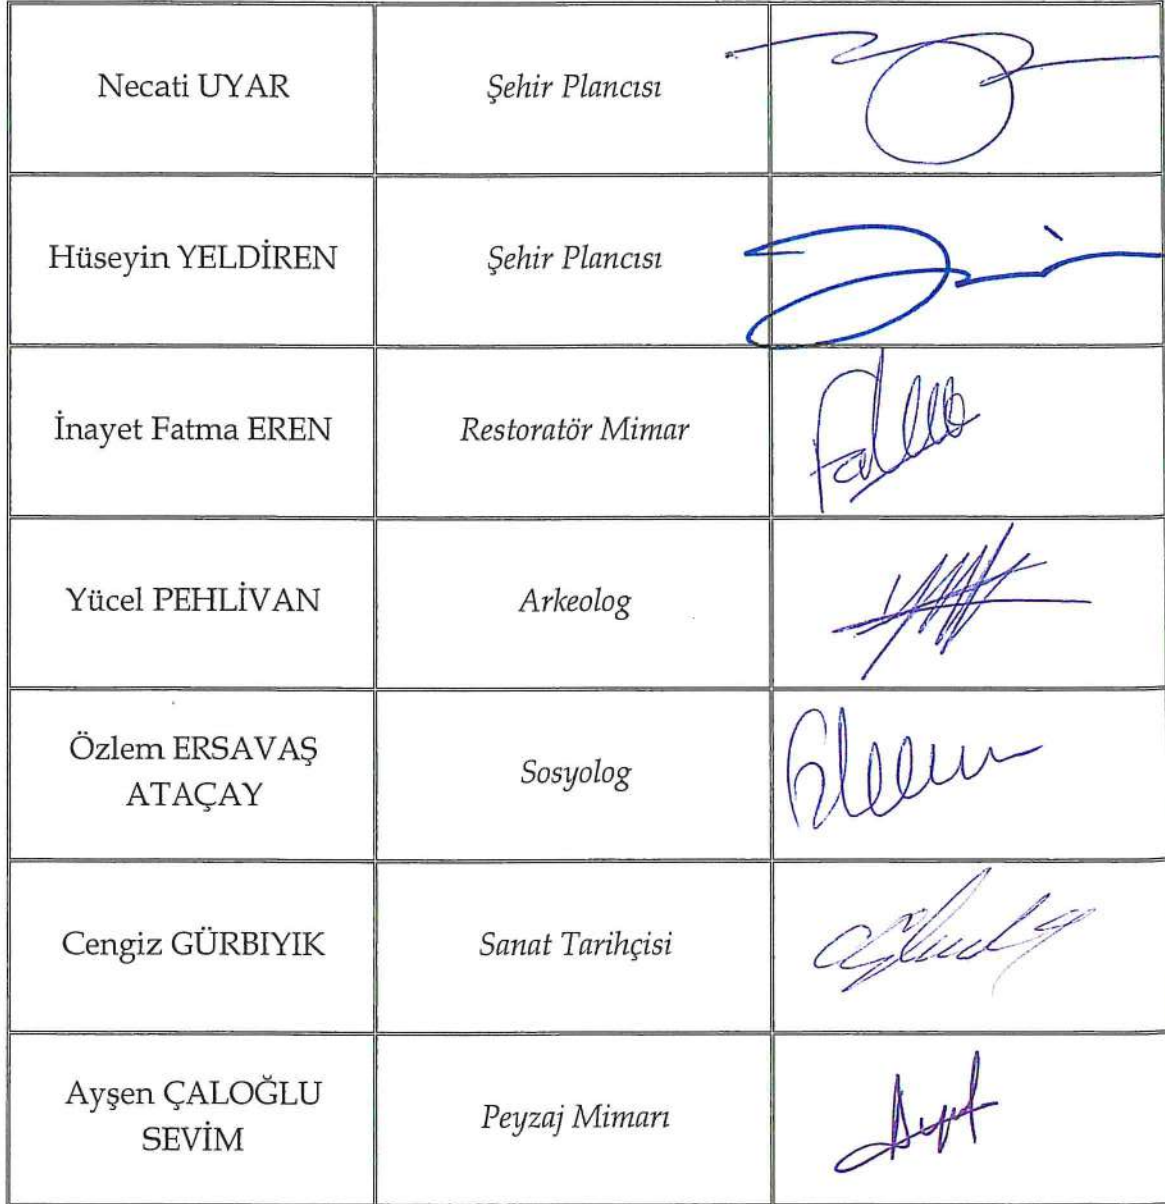 Necati UYAR
Şehir Plancısı
Hüseyin YELDİREN
Şehir Plancısı
İnayet Fatma EREN
Restoratör Mimar
Yücel PEHLİVAN
Arkeolog
Özlem ERSAVAŞ
ATAÇAY
Sosyolog
Cengiz GÜRBIYIK
Sanat Tarihçisi
Ayşen ÇALOĞLU
SEVİM
Peyzaj Mimarı